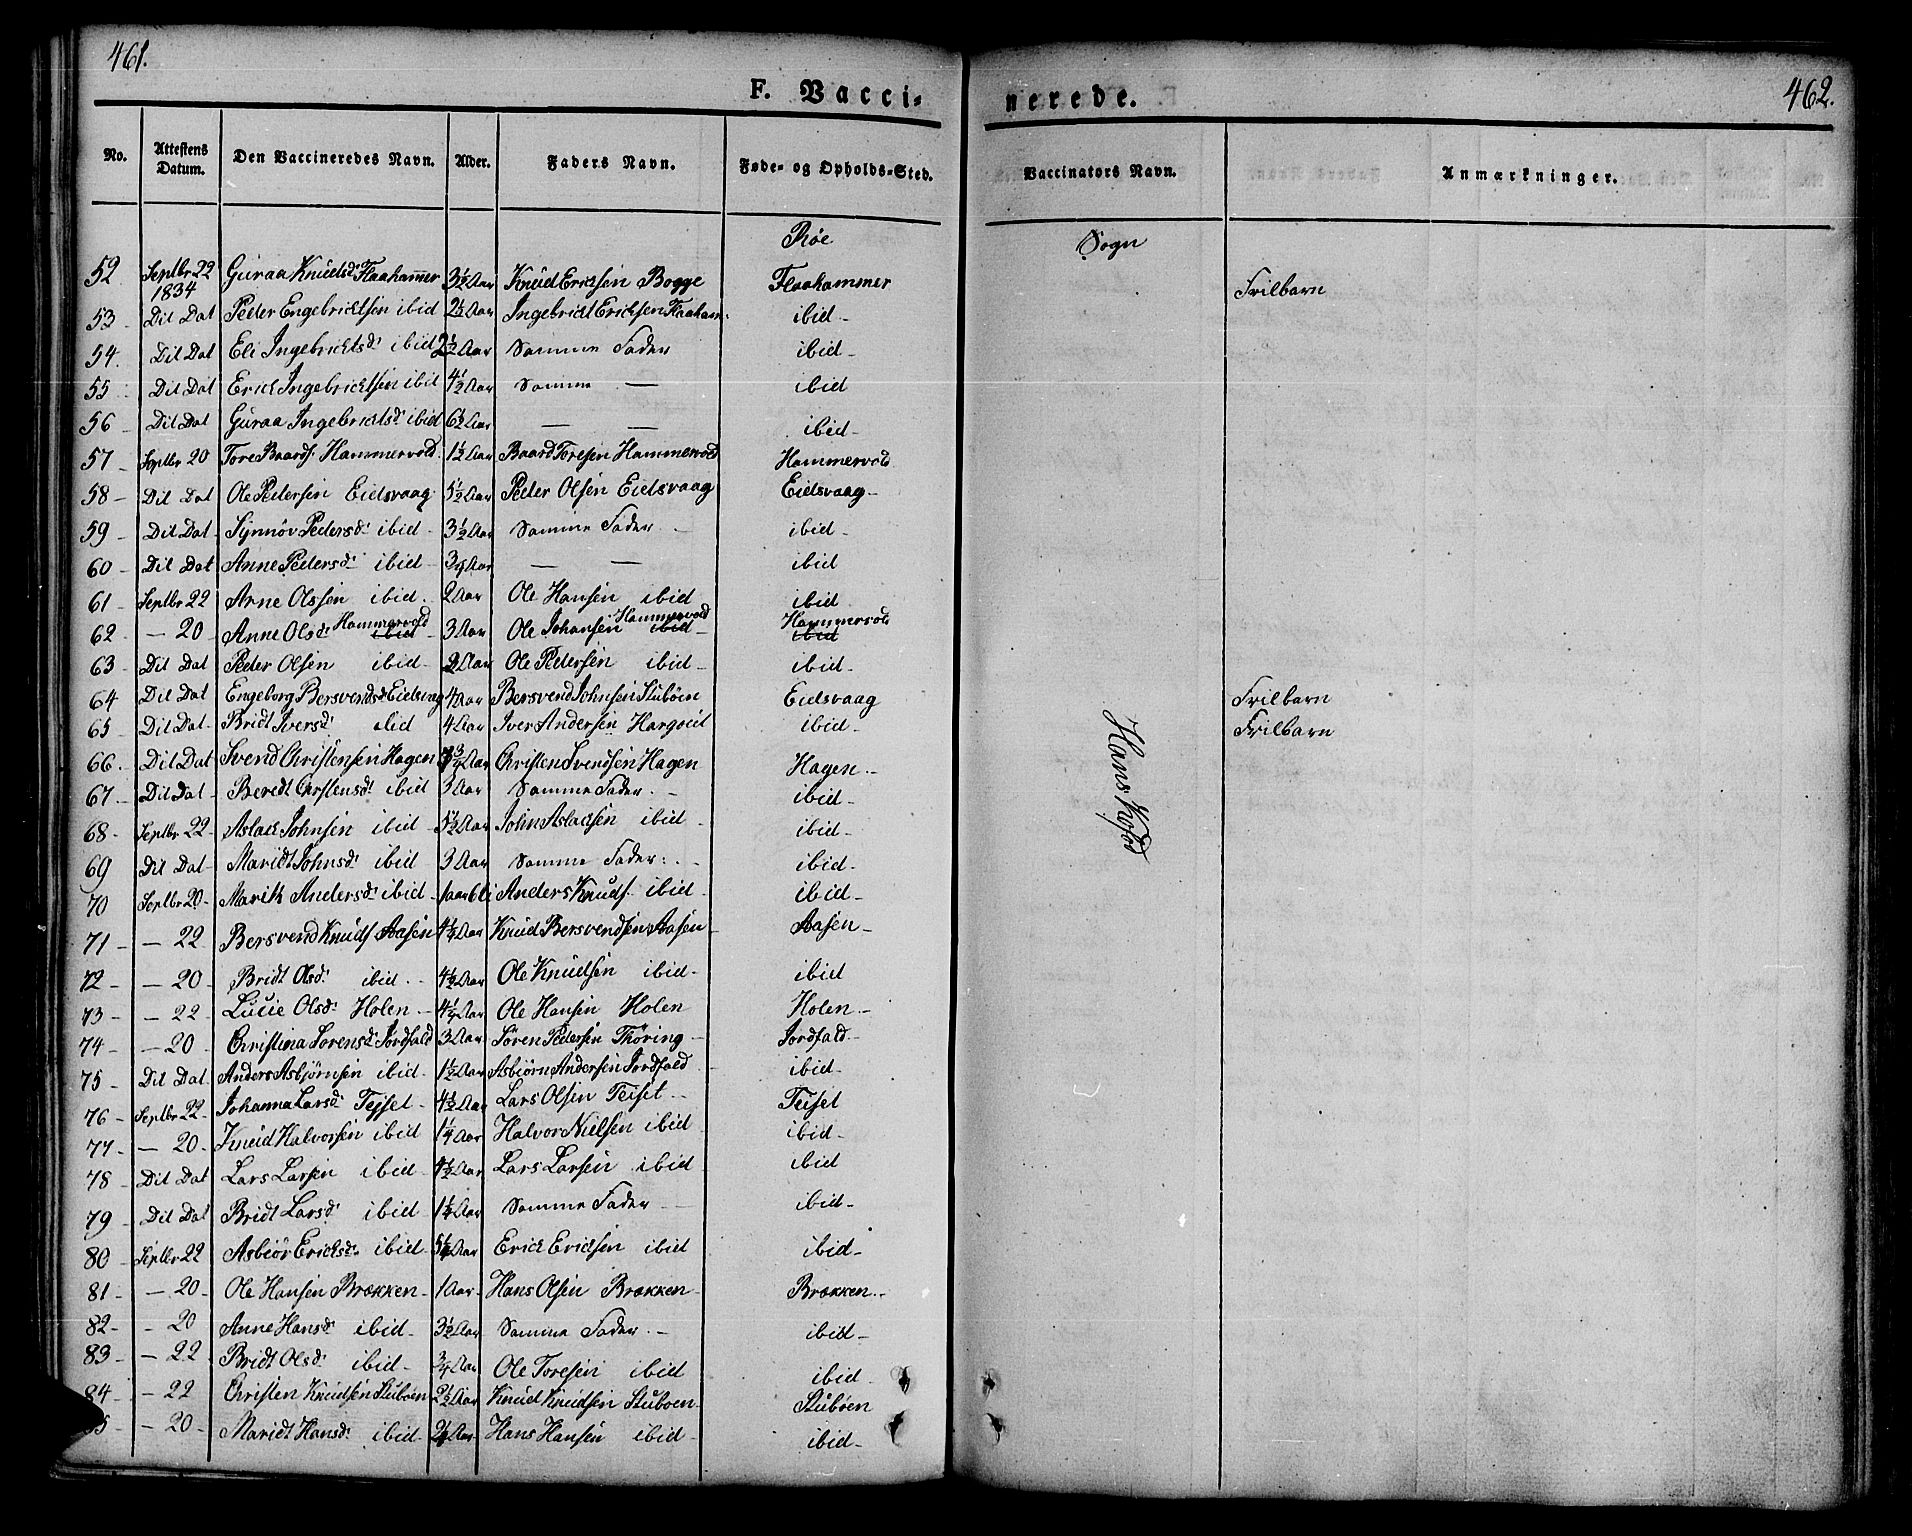 461.
462.
F. Vacci-
nerede.
No. Attestens Datum. Den Vaccineredes Navn. Alder. Faders Navn. Føde- og Opholds-Sted. Vaccinators Navn. Anmærkninger.
Røe Sogn
52 Septbr 22 1834 Guraa Knudsd. Flaahammer 3½ Aar Knud Ericksen Bogge Flaahammer Frilbarn
53 - Dit Dat Peder Engebricktsen ibid 2½ Aar Ingebrict Ericksen Flaaham: ibid -
54. Dit Dat Eli Ingebrichtsd. ibid 2½ Aar Samme Fader ibid -
55 - Dit Dat Erick Ingebricktsen ibid 4½ Aar Samme — ibid
56 - Dit Dat Guraa Ingebrictsd. ibid 6½ Aar — — ibid -
57 - Septbr 20 Tore Baards. Hammervold 1½ Aar Baard Toresen Hammervold Hammervold
58 - Dit Dat Ole Pedersen Eidsvaag 5½ Aar Peder Olsen Eidsvaag Eidsvaag -
59 - Dit Dat Synnøv Pedersd. ibid 3½ Aar Samme Fader - ibid -
60 - Dit Dat Anne Pedersd. ibid - ¾ Aar — — ibid
61 - Septbr 22 Arne Olssen ibid. 2 Aar Ole Hansen ibid ibid
62 - — 20 - Anne Olsd. Hammervold ibid 3 Aar Ole Johansen Hammervold ibid Hammervold ibid
63 - Dit Dat Peder Olsen ibid - Aar Ole Pedersen ibid - ibid -
64 Dit Dat Engeborg Bersvendsd. Eidsvaag 4 Aar Bersvend Johnsen Stubøen Eidsvaag Frilbarn
65 - Dit Dat - Bridt Iversd. ibid 4 Aar Iver Andersen ibid - Frilbarn
66 - Dit Dat Svend Christensen Hagen Aar Christen Svendsen Hagen Hagen -
67 - Dit Dat - Beredt ibid 3 Aar Samme Fader. - ibid -
68 - Septbr 22 - Aslack Johnsen ibid - 5½ Aar John Aslacksen ibid - ibid -
69 Dit Dat - Maridt Johnsd. ibid 3 Aar Samme Fader. - ibid -
70 Septbr 20 - Marith Andersd. ibid - 1 Aar Anders Knuds. ibid - ibid -
71 - — 22 Bersvend Knuds. Aasen 4¼ Aar Knud Bersvendsen Aasen - Aasen -
72 - — 20 - Bridt Olsd. ibid. - 4½ Aar Ole Knudsen ibid - ibid
73 - — 22 - Lucie Olsd. Holen - 4¼ Aar Ole Hansen Holen Holen -
74 - — 20 - Christina Sørensd. Jordfald 3 Aar Søren Pedersen Thøring - Jordfald -
75 - Dit Dat - Anders Asbjørnsen ibid - 1½ Aar Asbiørn Andersen Jordfald ibid -
76 - Septbr 22 - Johanna Larsd. Tejset - 4½ Aar Lars Olsen Teiset - Teiset
77 - — 20 - Knud Halvorsen ibid 1¼ Aar Halvor Nielsen ibid ibid -
78 - Dit Dat Lars Larsen ibid - 4½ Aar Lars Larsen ibid ibid
79 - Dit Dat Bridt Larsd. ibid 1¼ Aar Samme Fader - ibid -
80 - Septbr 22 Asbiør Ericksd. ibid - Aar Erick Ericksen ibid ibid -
81 - — 20 - Ole Hansen Brækken - 1 Aar - Hans Olsen Brækken - Brækken -
82 - - 20 Anne Hansd. ibid - 3½ Aar Samme Fader. - ibid -
83 - — 22 Bridt Olsd. ibid - ¾ Aar Ole Toresen ibid ibid -
84 - — 22 Christen Knudsen Stubøen 2½ Aar Knud Knudsen Stubøen - Stubøen
85 - — 20 - Maridt Hansd. ibid - Aar Hans Hansen ibid - ibid -
Hans